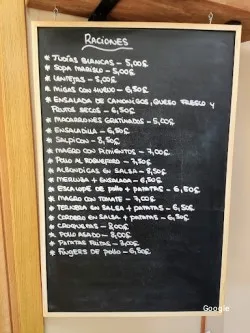 RACIONES
* JUDÍAS BLANCAS – 5,00€
* SOPA MARISCO – 5,00€
* LENTEJAS – 5,00€
* MIGAS CON HUEVO – 6,50€
* ENSALADA DE CANONIGOS, QUESO FRESCO Y
FRUTOS SECOS – 6,50€
* MACARRONES GRATINADOS – 5,00€
* ENSALADILLA – 6,50€
* SALPICON – 8,50€
* MAGRO CON PIMIENTOS – 7,00€
* POLLO AL ROQUEFORT – 7,50€
* ALBONDIGAS EN SALSA – 8,50€
* MERLUZA + ENSALADA – 6,50€
* ESCALOPE DE POLLO + PATATAS – 6,50€
* MAGRO CON TOMATE – 7,00€
* TERNERA EN SALSA + PATATAS – 6,50€
* CORDERO EN SALSA + PATATAS – 6,50€
* CROQUETAS – 8,00€
* POLLO ASADO – 8,00€
* PATATAS FRITAS – 3,00€
* FINGERS DE POLLO – 6,50€
Google